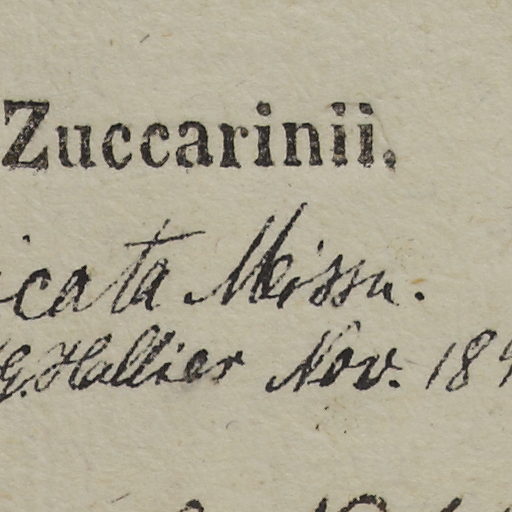 Zuccarinii.
icata Meissn.
G. Hallier Nov. 189